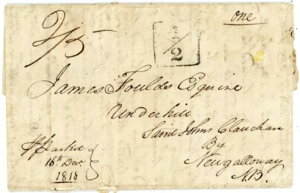 one
2/5
1/2
James Foulds Esquire
Underhill
Saint Johns Clauchan
By
Newgalloway
N.B.
16th Decr
1818